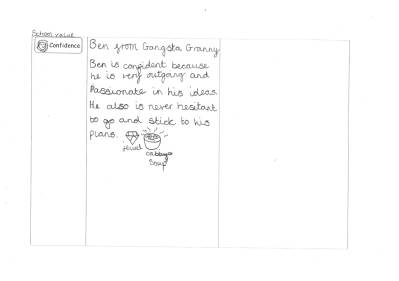 School value
Confidence
Ben from Gangsta Granny
Ben is confident because
he is very outgoing and
Passionate in his ideas.
He also is never hesitant
to go and stick to his
plans.
Cabbage
Soup